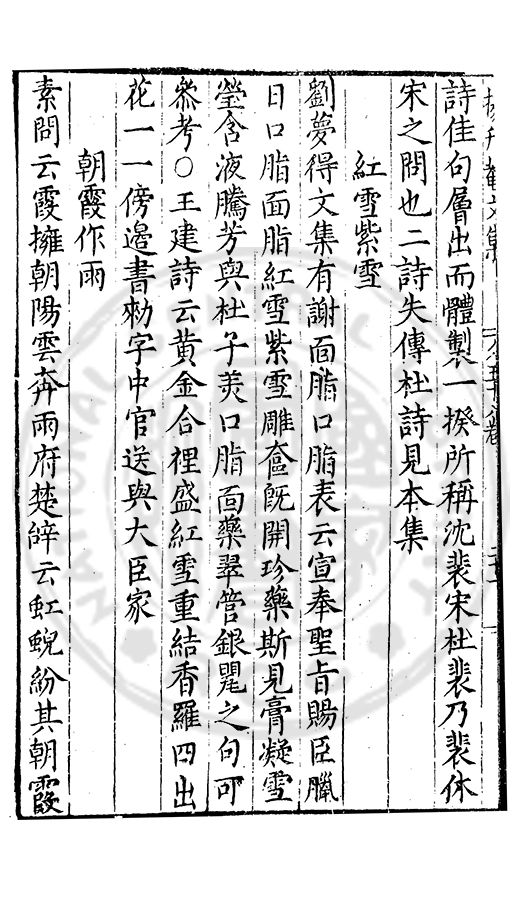 詩佳句層出而體製一揆所稱沈裴宋杜裴乃裴休
宋之問也二詩失傳杜詩見本集
紅雪紫雪
劉夢得文集有謝面脂口脂表云宣奉聖旨賜臣臘
日口脂面脂紅雪紫雪雕奩旣開珍藥斯見膏凝雪
瑩含液騰芳與杜子美口脂面藥翠管銀甖之句可
叅考○王建詩云黃金合裡盛紅雪重結香羅四出
花一一傍邉書勑字中官送與大臣家
朝霞作雨
素問云霞擁朝陽雲奔雨府楚辝云虹蜺紛其朝霞